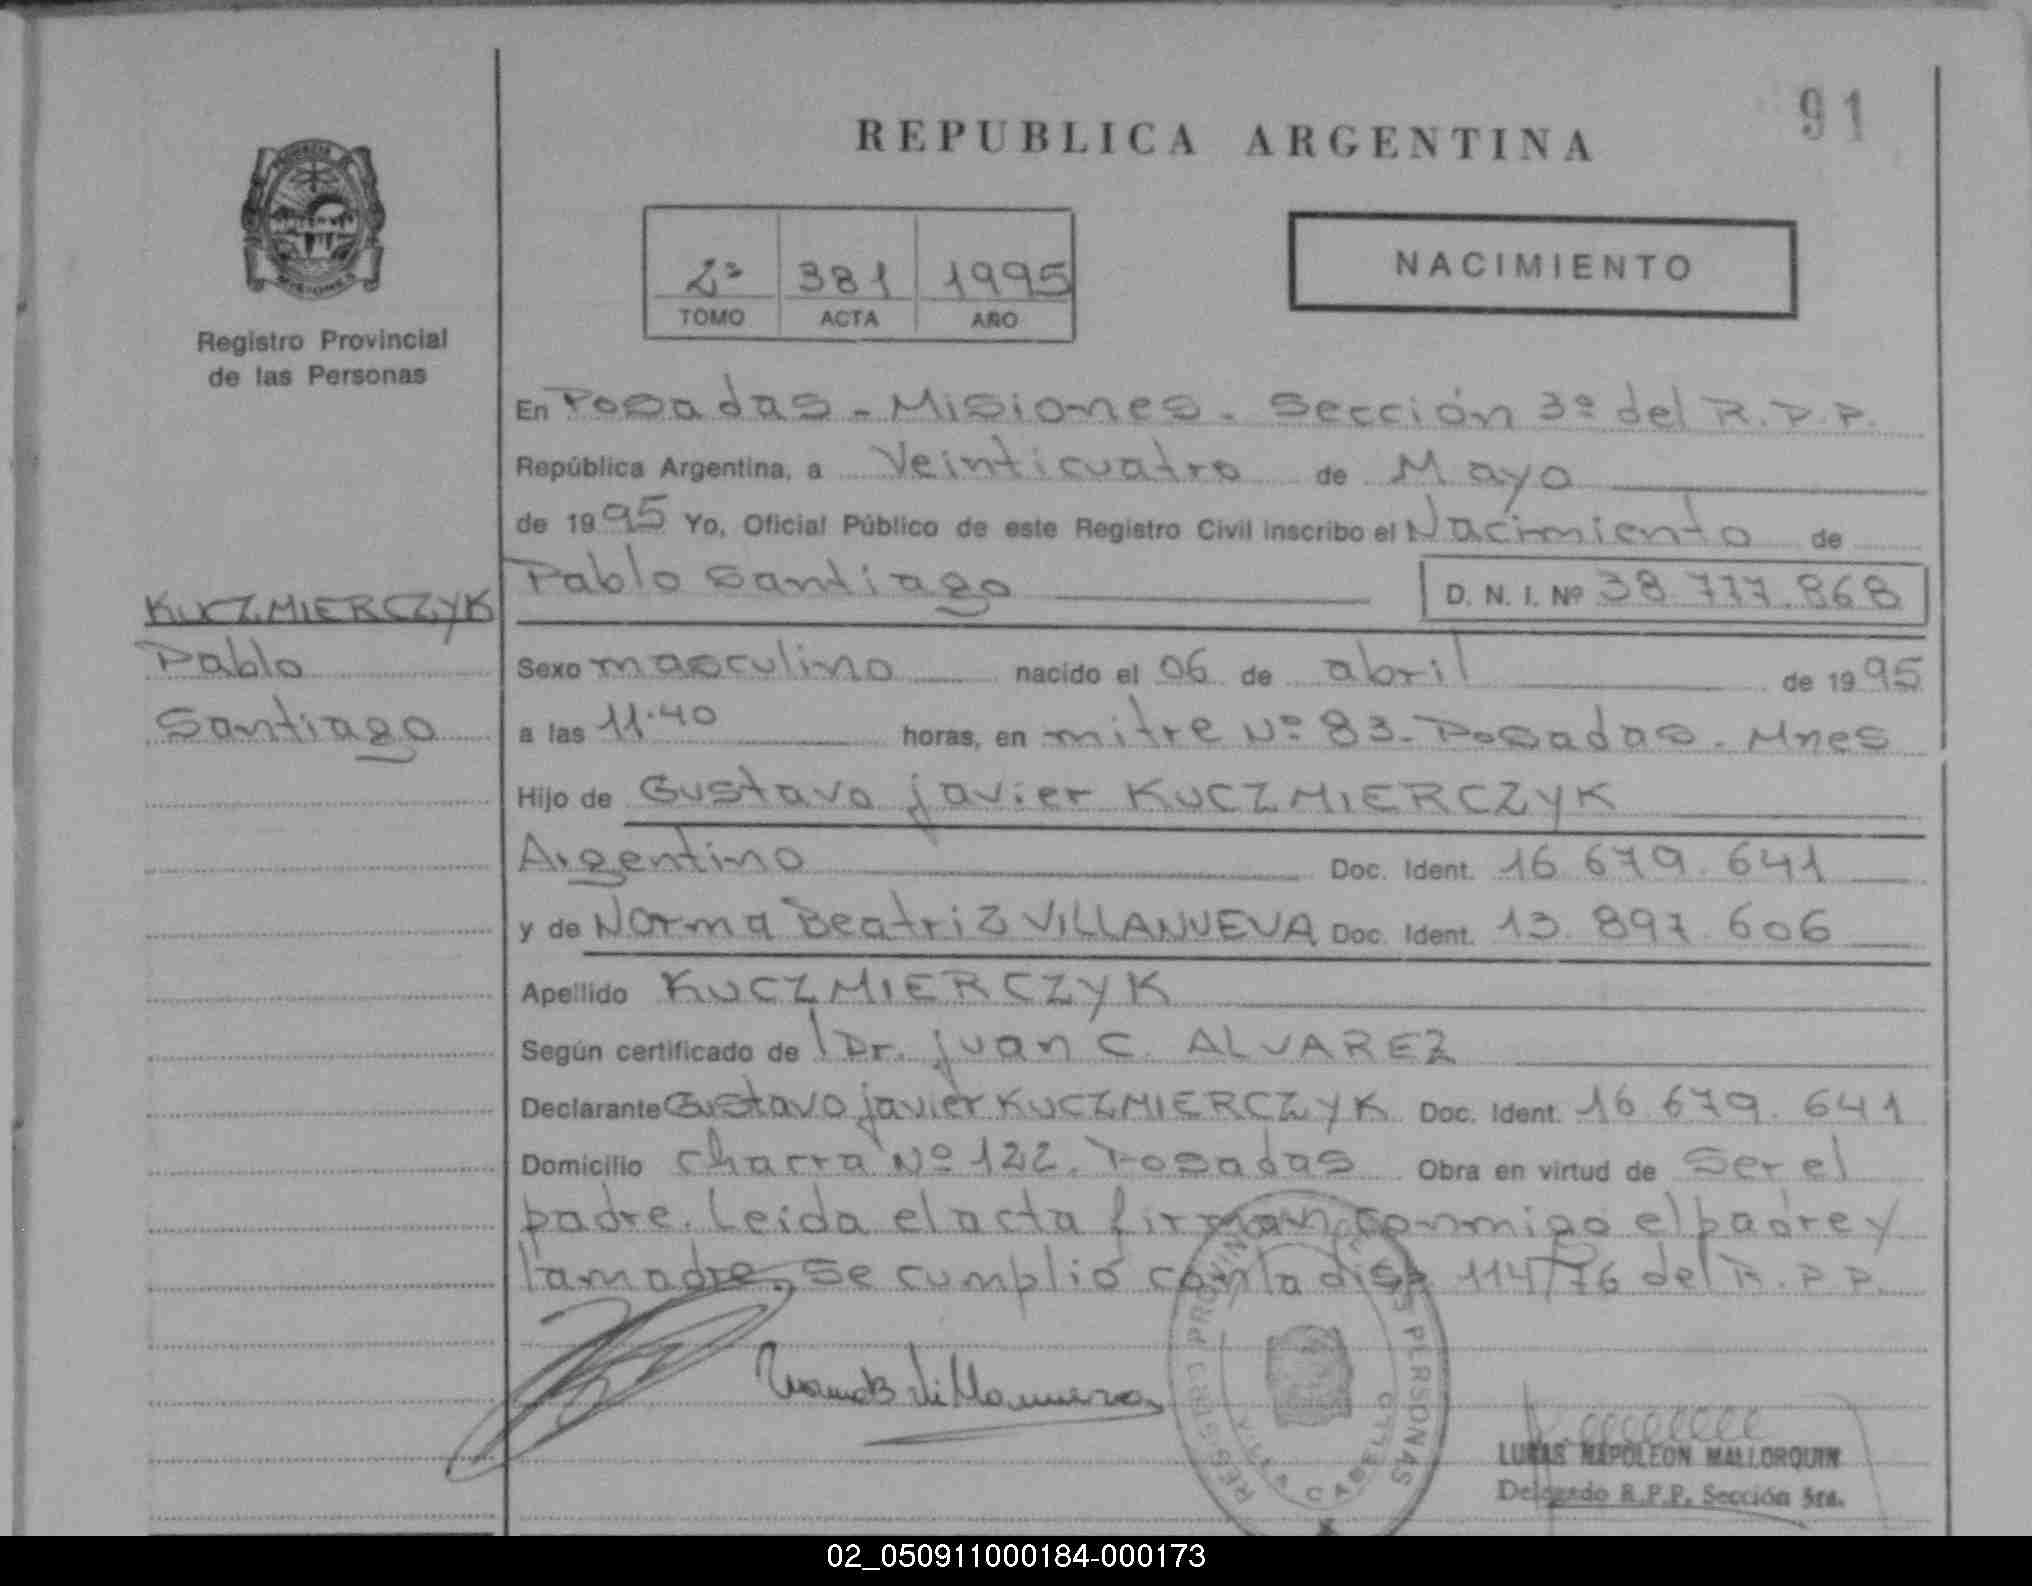 91
REPUBLICA ARGENTINA
2º 381 1995
TOMO ACTA AÑO
NACIMIENTO
Registro Provincial
de las Personas
En Posadas - Misiones. Sección 3º del R.P.P.
República Argentina, a Veinticuatro de Mayo
de 1995 Yo, Oficial Público de este Registro Civil inscribo el Nacimiento de
Pablo Santiago D. N. I. Nº 38.777.868
KUCZMIERCZYK
Pablo
Santiago
Sexo masculino nacido el 06 de abril de 1995
a las 11.40 horas, en mitre Nº 83 - Posadas. Mnes
Hijo de Gustavo javier KUCZMIERCZYK
Argentino Doc. Ident. 16.679.641
y de Norma Beatriz VILLANUEVA Doc. Ident. 13.897.606
Apellido KUCZMIERCZYK
Según certificado de Dr. juan C. ALVAREZ
Declarante Gustavo javier KUCZMIERCZYK Doc. Ident. 16.679.641
Domicilio Chacra Nº 122. Posadas Obra en virtud de Ser el
padre. Leida el acta firman conmigo el padre y
la madre. Se cumplió con la disp 114/76 del R.P.P.
REGISTRO PROVINCIAL DE LAS PERSONAS
VILLA CABELLO
LUCAS NAPOLEON MALLORQUIN
Delegado R.P.P. Sección 3ra.
02_050911000184-000173